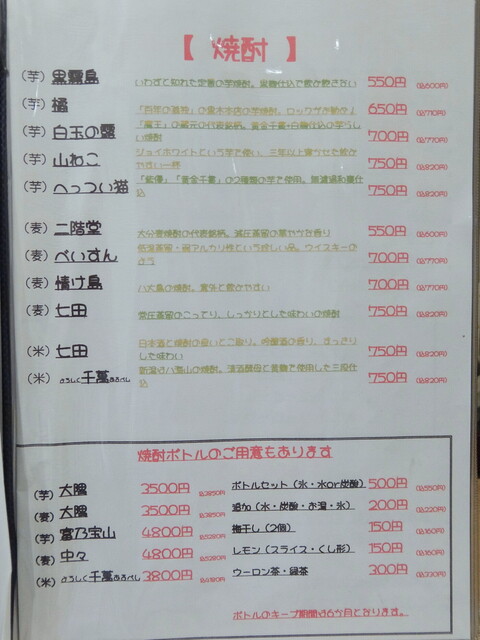 【 焼酎 】
(芋) 黒霧島 いわずと知れた定番の芋焼酎。黒麹仕込で飲み飽きない 550円 (込600円)
(芋) 橘 「百年の孤独」の黒木本店の芋焼酎。ロックがお勧め♪ 650円 (込710円)
(芋) 白玉の露 「魔王」の蔵元の代表銘柄。黄金千貫+白麹仕込の芋らしい焼酎 700円 (込770円)
(芋) 山ねこ ジョイホワイトという芋で使い、三年以上寝かせた飲みやすい一杯 750円 (込820円)
(芋) へっつい猫 「紫優」「黄金千貫」の2種類の芋で使用。無濾過和甕仕込 750円 (込820円)
(麦) 二階堂 大分麦焼酎の代表銘柄。減圧蒸留の華やかな香り 550円 (込600円)
(麦) ぺいすん 低温蒸留・弱アルカリ性という珍しい品。ウイスキーのよう 700円 (込770円)
(麦) 情け島 八丈島の焼酎。意外と飲みやすい 700円 (込770円)
(麦) 七田 常圧蒸留のこってり、しっかりとした味わいの焼酎 750円 (込820円)
(米) 七田 日本酒と焼酎の良いとこ取り。吟醸酒の香り、すっきりした味わい 750円 (込820円)
(米) よろしく千萬あるべし 新潟は八海山の焼酎。清酒酵母と黄麹で使用した三段仕込 750円 (込820円)
焼酎ボトルのご用意もあります
(芋) 大隅 3500円 込3850円
(麦) 大隅 3500円 込3850円
(芋) 富乃宝山 4800円 込5280円
(麦) 中々 4800円 込5280円
(米) よろしく千萬あるべし 3800円 込4180円
ボトルセット(氷・水or炭酸) 500円 (込550円)
追加(水・炭酸・お湯・氷) 200円 (込220円)
梅干し(2個) 150円 (込160円)
レモン(スライス・くし形) 150円 (込160円)
ウーロン茶・緑茶 300円 (込330円)
ボトルのキープ期間は6か月となります。